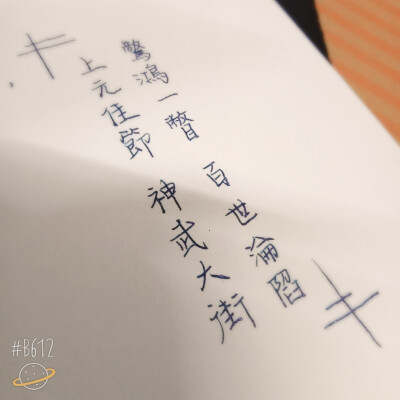 驚鴻一瞥 百世淪陷
上元佳節 神武大街
#B612